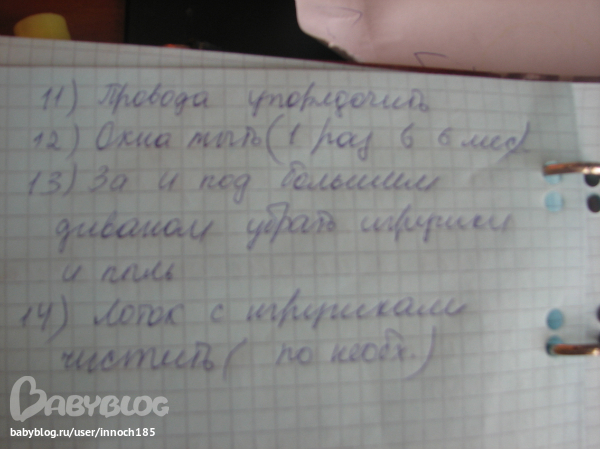 11) Провода упорядочить
12) Окна мыть (1 раз в 6 мес)
13) За и под большим
диваном убрать игрушки
и пыль
14) Лоток с игрушками
чистить ( по необх.)
BABYBLOG
babyblog.ru/user/innoch185